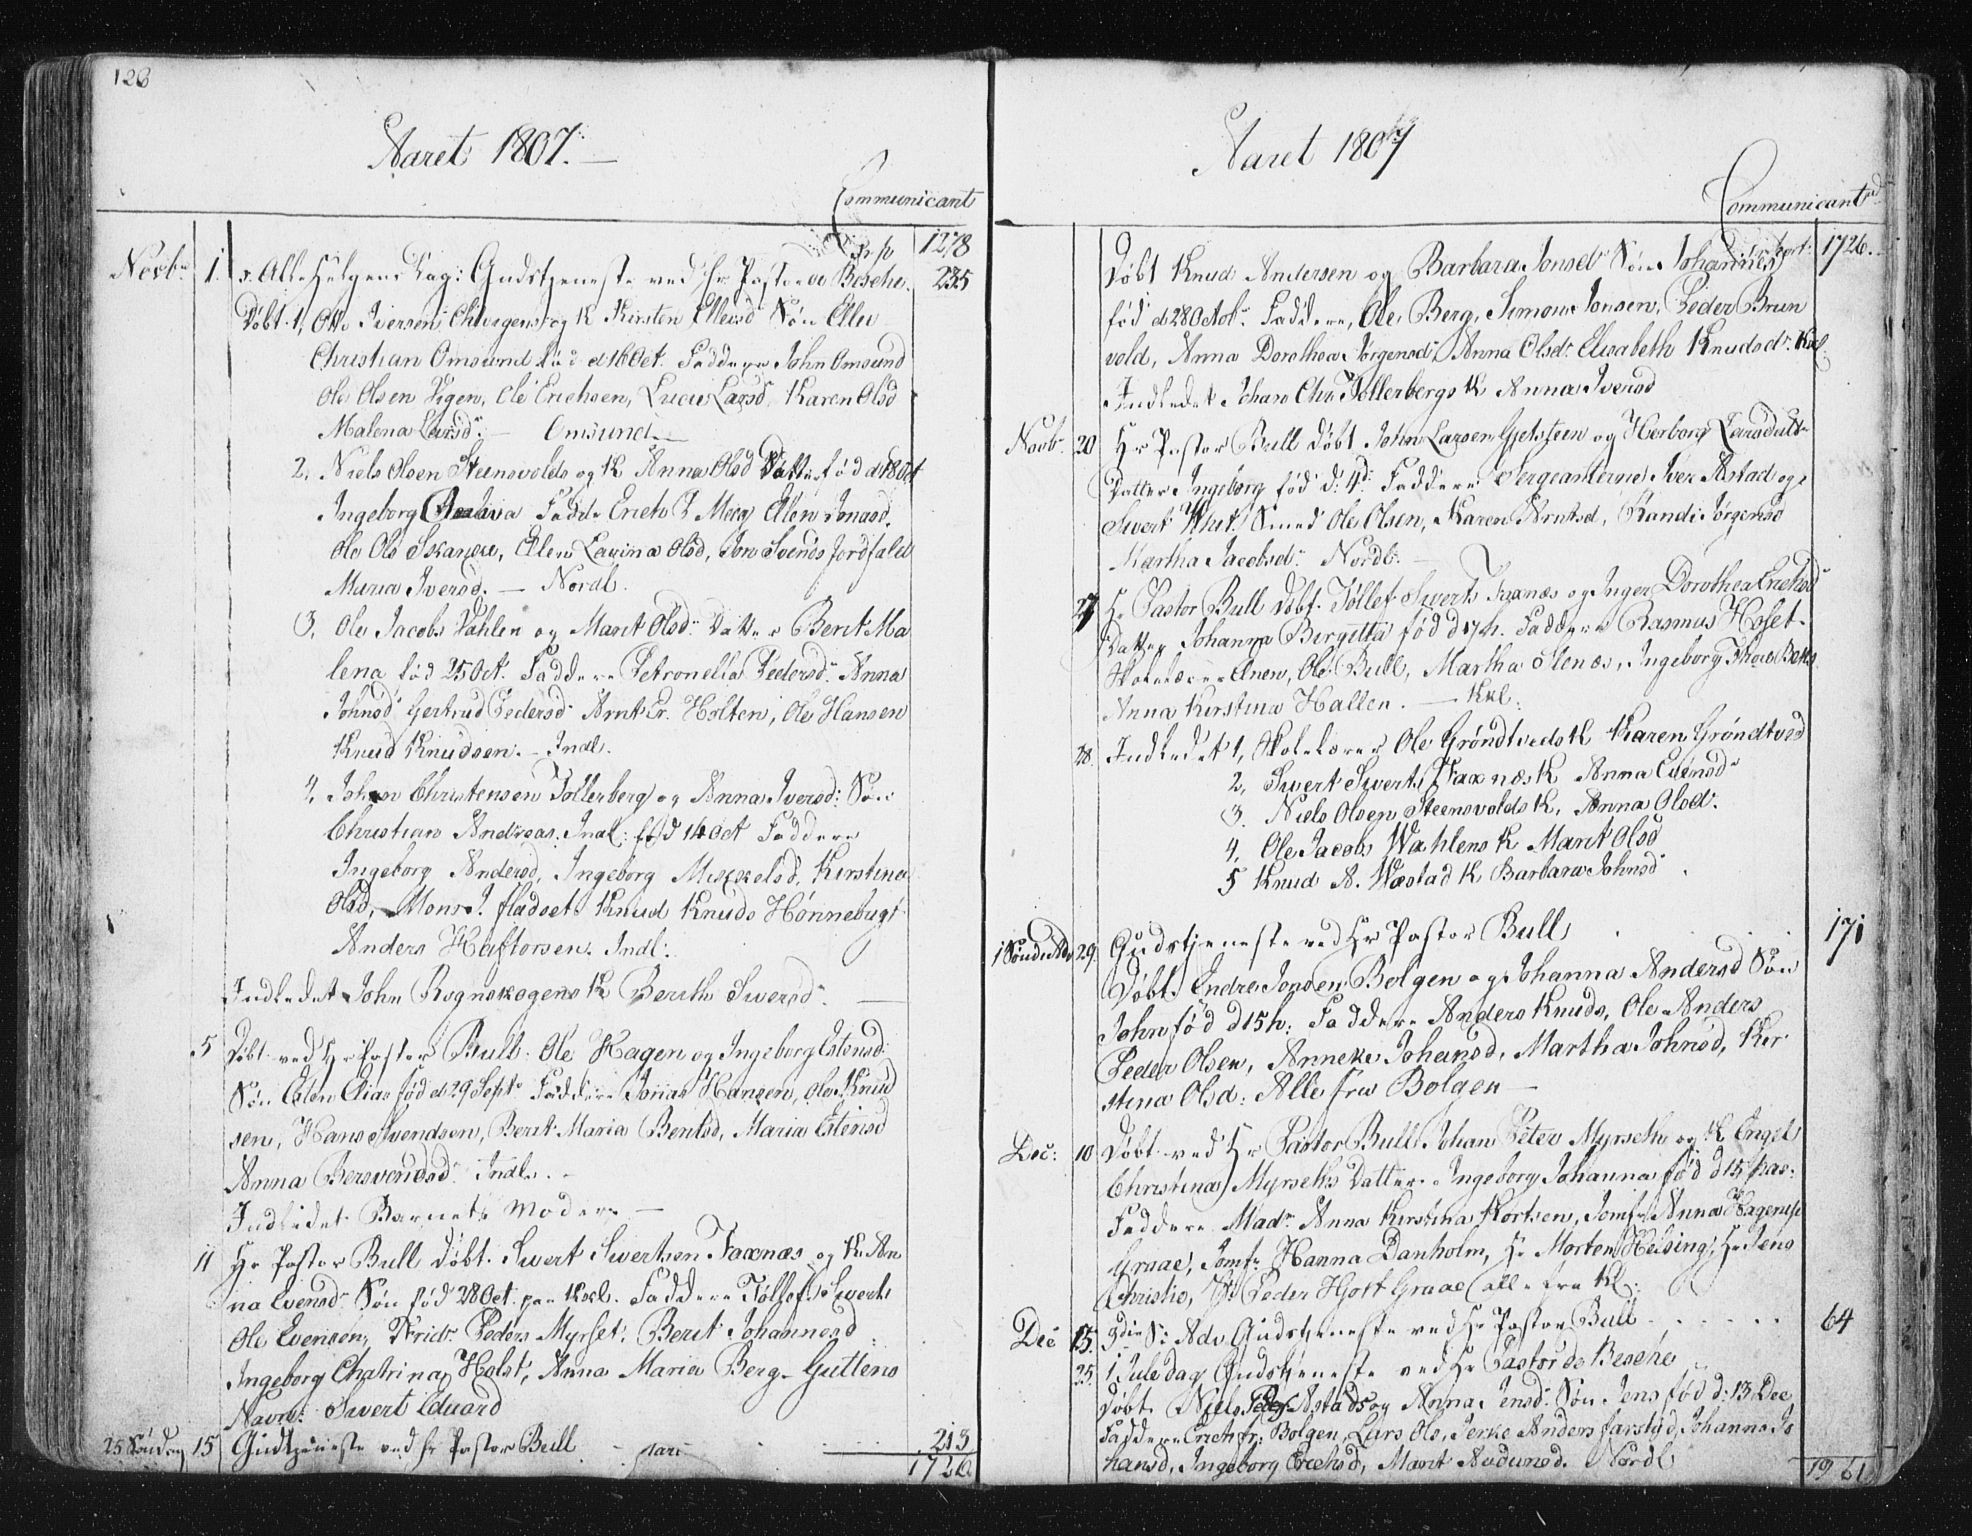 128
Aaret 1807.
Communicant
Trsp 1278
Novbr 1. Alle Helgens Dag: Gudstjeneste ved Hr Pastor de Besche. 235
Døbt 1, Otto Iversen og K Kirsten Ellevsd Søn Ellev
Christian Omsund fød d 16 Oct. Faddere John Omsund
Ole Olsen Vigen, Ole Erichsen, Lucie Larsd, Karen Olsd
Malena Larsd. — Omsund
2, Niels Olsen Steensvolds og K Anna Olsd Datter fød d 18 Oct
Ingeborg Fadde Erich J Moeg Ellen Jonasd,
Ole Ols Skancke, Ellen Lavina Olsd, Jon Svends Jordfald
Maria Iversd. — Nordl.
3, Ole Jacobs Vahlen og Marit Olsd. Datter Berit Ma
lena fød 25 Oct. Faddere Petronella Pedersd. Anna
Johnsd Gertrud Pedersd Arnt Er. Holten, Ole Hansen
Knud Knudsen. — Indl.
4, Johan Christensen Tollerberg og Anna Iversd: Søn
Christian Andreas: Indl: fød 14 Oct Faddere
Ingeborg Andersd, Ingeborg Mikkelsd, Kirstina
Olsd, Mons J. fladset. Knud Knuds Hønnebugt
Anders Haftorsen. Indl:
Indledet John Rognskogens K Berith Siversd. —
5 Døbt ved Hr Pastor Bull: Ole Hagen og Ingeborg Estensd:
Søn Elias fød d 29 Septr Faddere Jonas Hansen, Ole Knud
sen, Hans Svendsen, Berit Maria Bentsd, Maria Estensd
Anna Bersvendsd. Indl. —
Indledet Barnets Moder —
11 Hr Pastor Bull døbt. Sivert Sivertsen Faxnæs og K An
na Evensd. Søn fød 28 Oct. paa Kxl. Faddere Tollef Siverts
Ole Evensen, Fridr. Peders Myrset, Berit Johannesd
Ingeborg Chatrina Holst, Anna Maria Berg. Guttens
Navn: Sivert Eduard
25 Søndag 15 Gudstjeneste ved Hr Pastor Bull 213
1726
Aaret 1807
Communicant
Transport: 1726
Døbt Knud Andersen og Barbara Jonsd Søn Johannes
fød d 28 Octobr. Faddere, Ole Berg, Simon Jonsen, Peder Brun
vold, Anna Dorothea Jørgensd: Anna Olsd. Elisabeth Knudsdr. Kxl.
Indledet Johan Chr Tollerbergs K Anna Iversd
Novbr 20 Hr Pastor Bull døbt John Larsen Gjelsteen og Herborg Larsdatt
Datter Ingeborg fød d: 4d. Faddere Sergeanterne Iver Astad og
Sivert Smed Ole Olsen, Karen Arntsd, Randi Jørgensd
Martha Jacobsd. Nordl. —
27 Hr Pastor Bull døbt. Tollef Siverts Faxnæs og Inger Dorothea Erichsd
Datter Johanna Birgitta fød d 17 h. Faddere Rasmus Hoset.
Skolelærer Enen, Ole Bull, Martha Stenæs, Ingeborg
Anna Kirstina Hallen. — Kxl.
28. Indledet 1, Skolelærer Ole Grøndtveds K Karen Grøndtved
2, Sivert Siverts Faxnæs K Anna Evensd
3. Niels Olsen Steensvolds K, Anna Olsd.
4, Ole Jacobs Wahlens K Marit Olsd
5 Knud A. Wæstad K Barbara Johnsd
1 Sønd. Adv 29. Gudstjeneste ved Hr Pastor Bull 171
Døbt. Endre Jonsen Bolgen og Johanna Andersd Søn
John fød d 15 h: Faddere Anders Knuds, Ole Anders
Peder Olsen, Anneke Johansd, Martha Johnsd, Kir
stina Olsd: Alle fra Bolgen —
Dec: 10 Døbt ved Hr Pastor Bull Johan Peter Myrseth og K Engel
Christina Myrseths Datter. Ingeborg Johanna fød d 15 pas:
Faddere Mad. Anna Kirstina Kortsen, Jomfr Anna Hagerup
Graae, Jomfr. Hanna Danholm, Hr Morten Heising, Hr Jens
Christie, Hr Peder Hjort Graae (alle fra Kl.
Dec 13. 3die S: Adv. Gudstjeneste ved Hr Pastor Bull 64
25. 1 Juledag Gudstjeneste ved Hr Pastor de Besche
Døbt. Niels Peder Astads og Anna Jensd: Søn Jens fød d: 13 Dec
Faddere Erich fr: Bolgen, Lars Ols, Anders farstad, Johanna Jo
hansd, Ingeborg Erichsd, Marit Audunsd. Nordl
1961